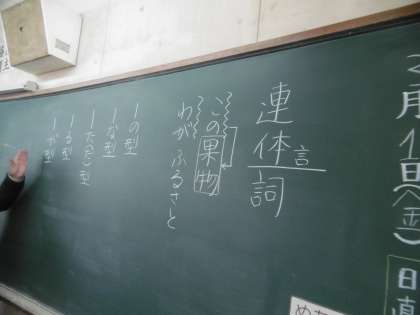 月1日(金)
日直
連体詞
言
この果物
わがふるさと
ーの型
ーな型
ーた(だ)型
ーる型
ーが型
め